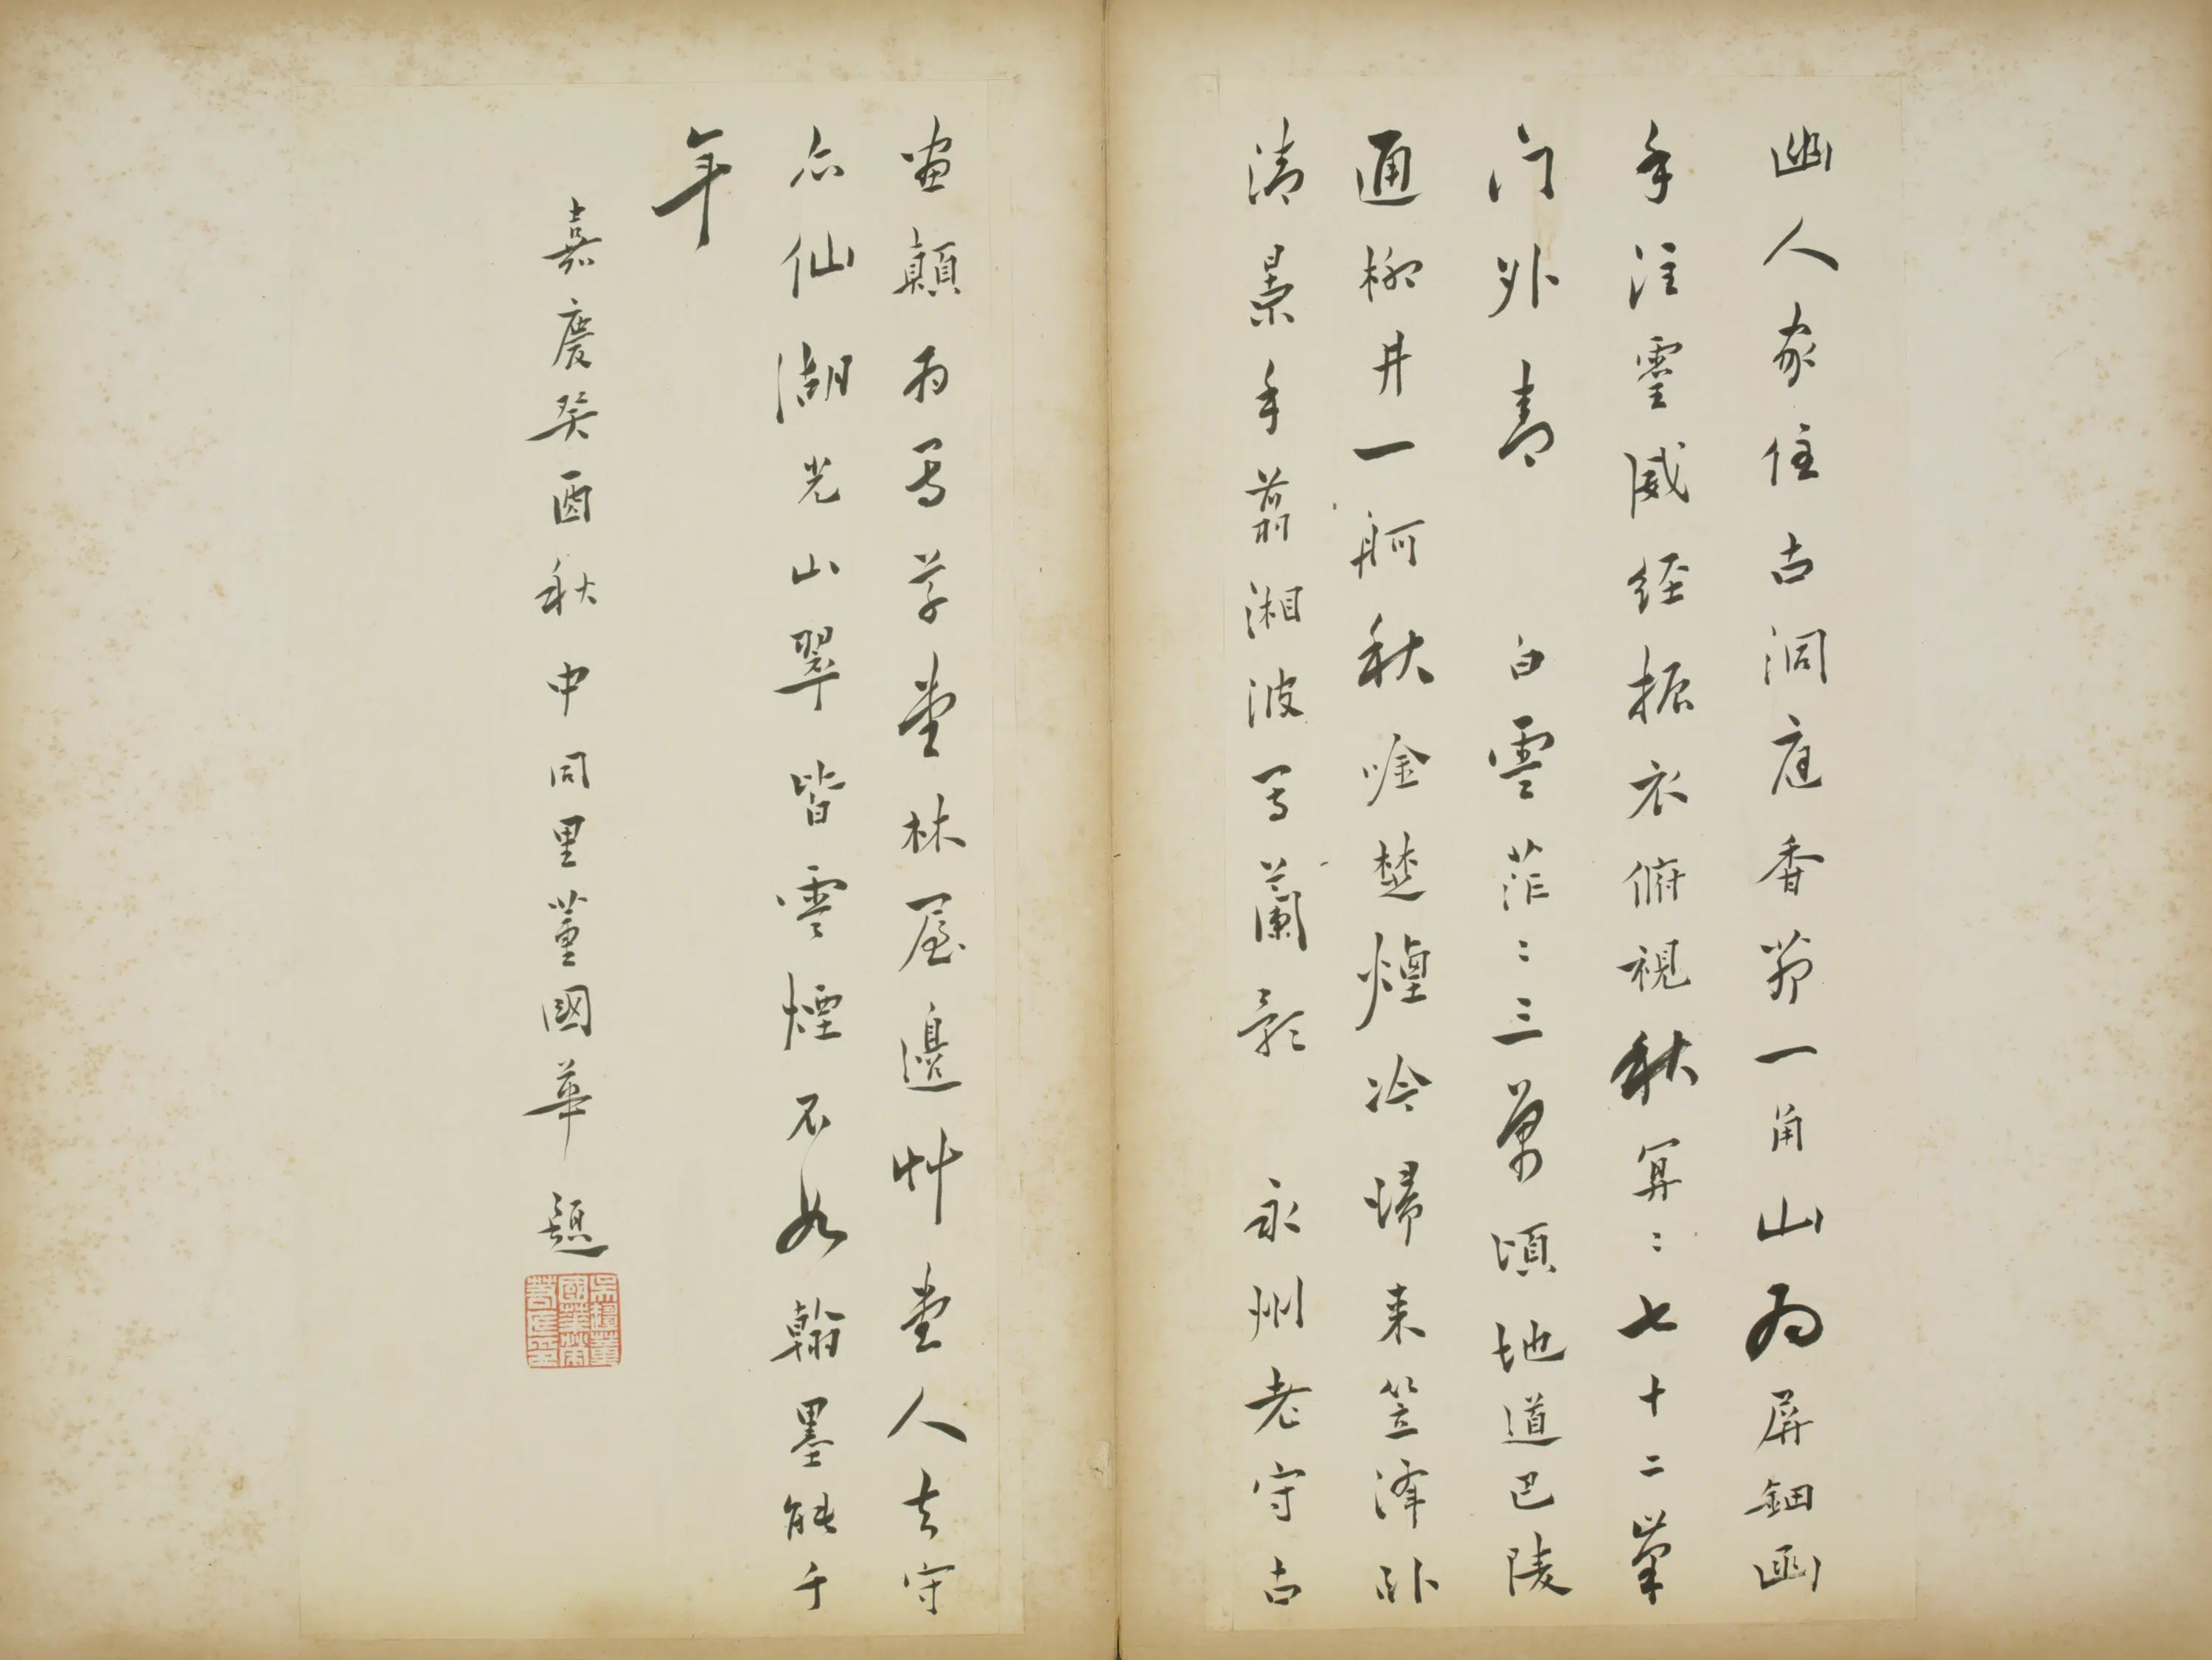 幽人家住古洞庭香茆一角山為屏鈿函
手注靈威經振衣俯視秋冥〻七十二峯
门外青　白雲茫〻三萬頃地道巴陵
通柳井一舸秋唫楚煙冷歸来笠澤卧
清景手翦湘波寫蘭影　永州老守古
畫顛為寫草堂林屋邊艸堂人去守
亦仙湖光山翠皆雲煙不如翰墨能千
年
嘉慶癸酉秋中同里董國華題